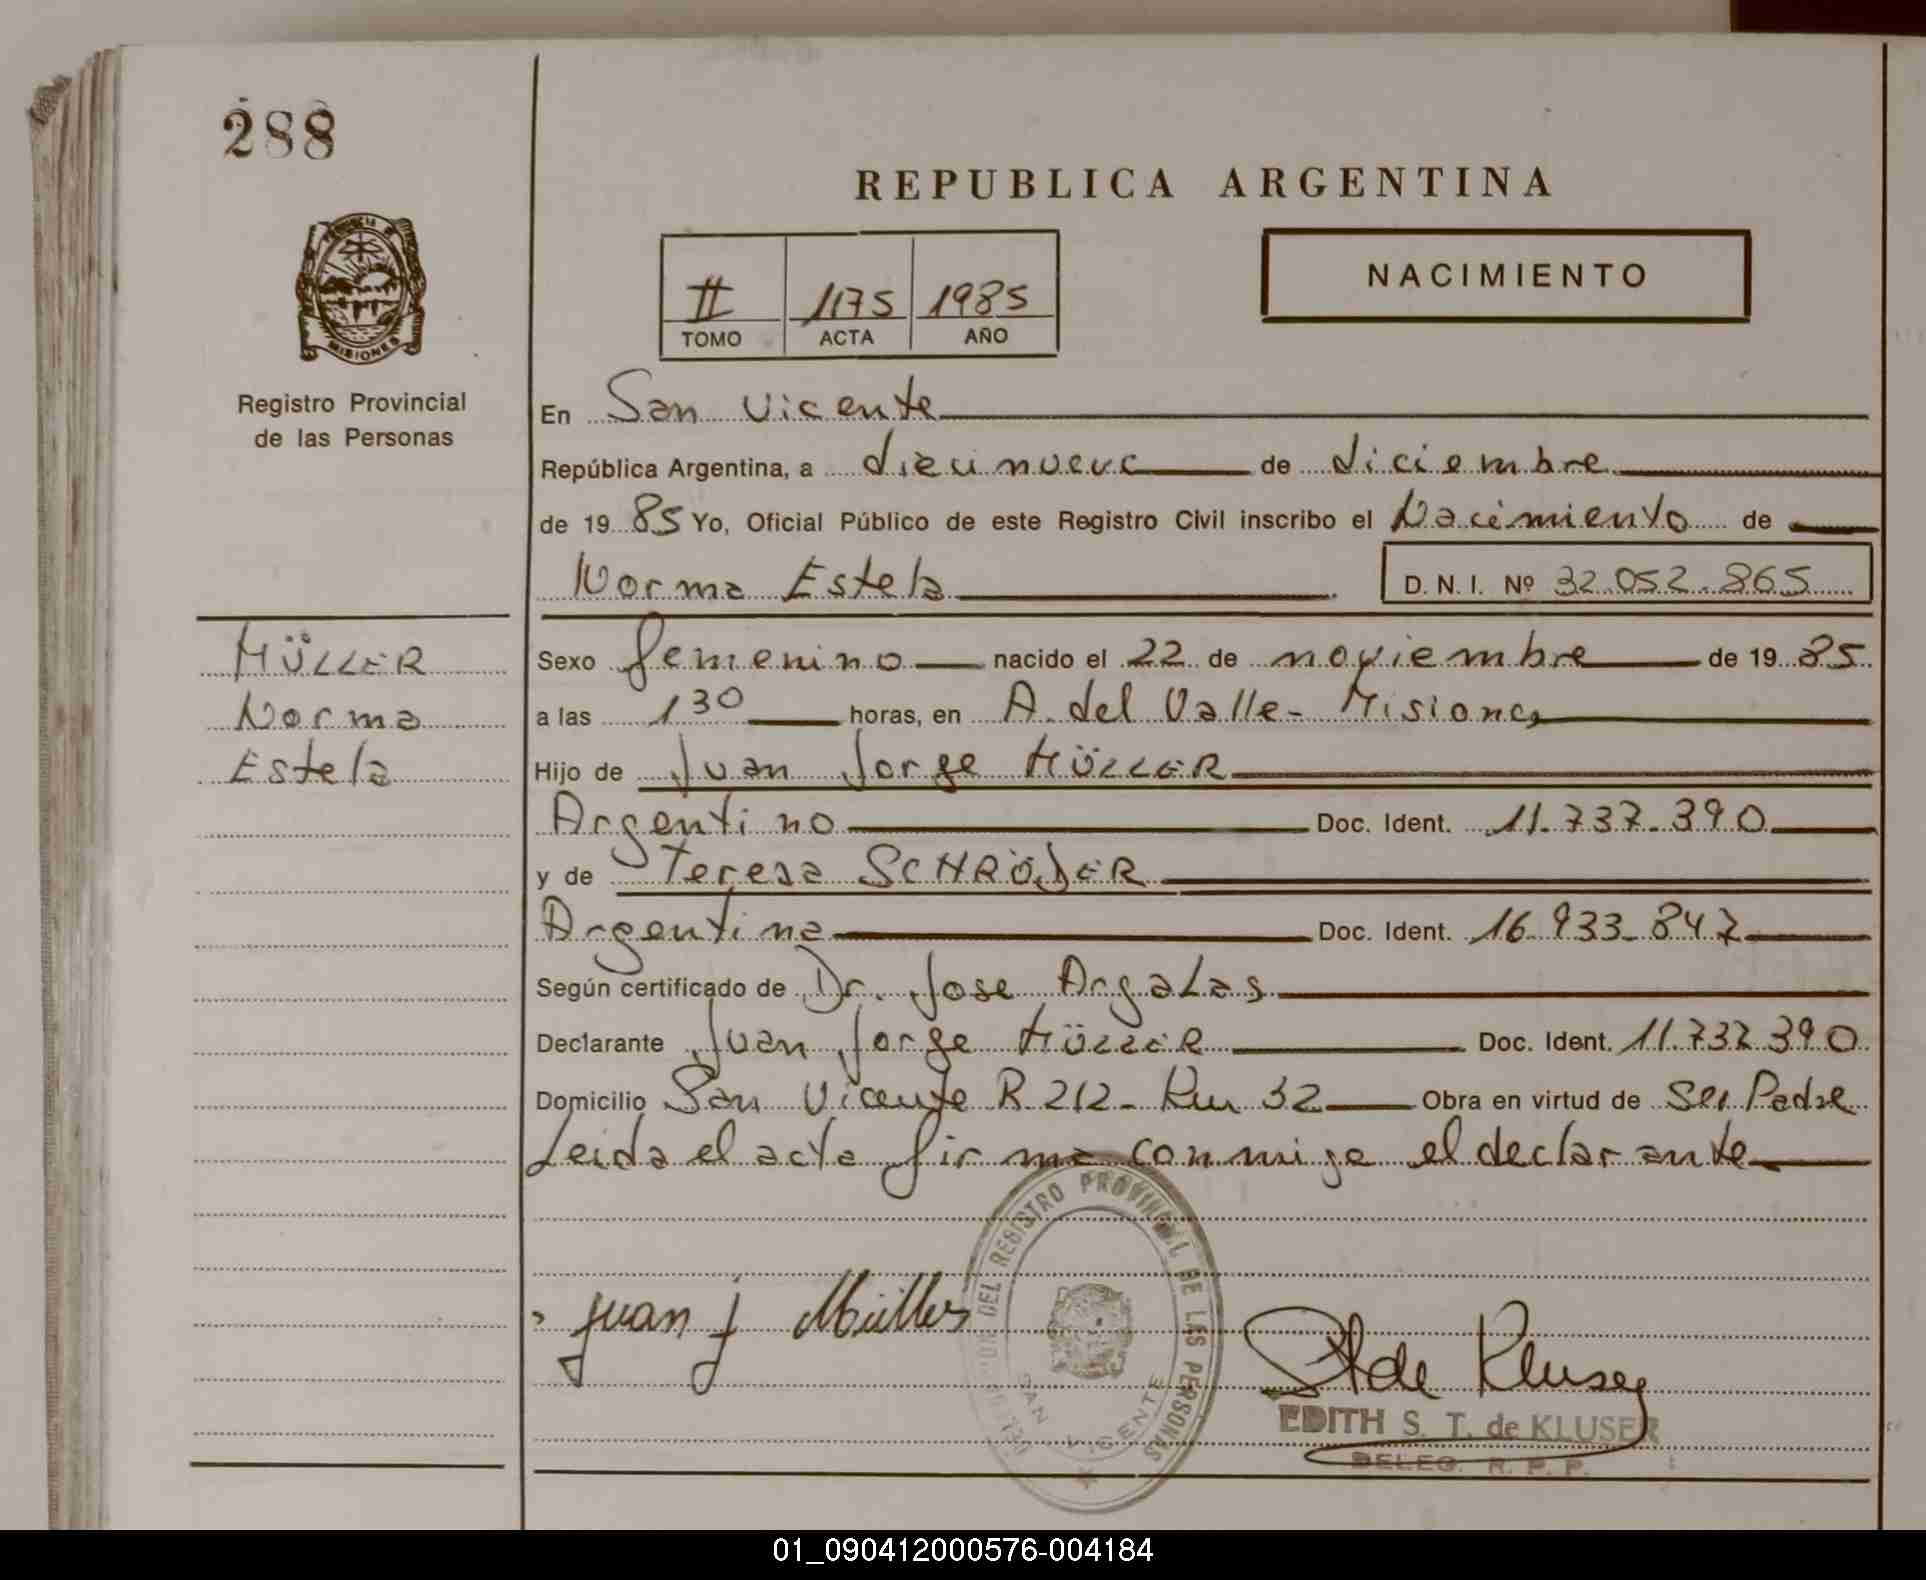 288
REPUBLICA ARGENTINA
PROVINCIA DE
MISIONES
Registro Provincial
de las Personas
II 1175 1985
TOMO ACTA AÑO
NACIMIENTO
En San Vicente
República Argentina, a diecinueve de diciembre
de 1985 Yo, Oficial Público de este Registro Civil inscribo el Nacimiento de
Norma Estela D. N. I. Nº 32.052.865
MÜLLER
Norma
Estela
Sexo femenino nacido el 22 de noviembre de 1985
a las 1 30 horas, en A. del Valle - Misiones
Hijo de Juan Jorge MÜLLER
Argentino Doc. Ident. 11.737.390
y de Teresa SCHRÖDER
Argentina Doc. Ident. 16.933.847
Según certificado de Dr. Jose Argalas
Declarante Juan Jorge MÜLLER Doc. Ident. 11.737.390
Domicilio San Vicente R. 212 - Km 32 Obra en virtud de ser Padre
Leida el acta firma conmigo el declarante
DEL REGISTRO PROVINCIAL DE LAS PERSONAS
SAN VICENTE
Juan J Müller
de Kluser
EDITH S. T. de KLUSER
DELEG. R. P. P.
01_090412000576-004184